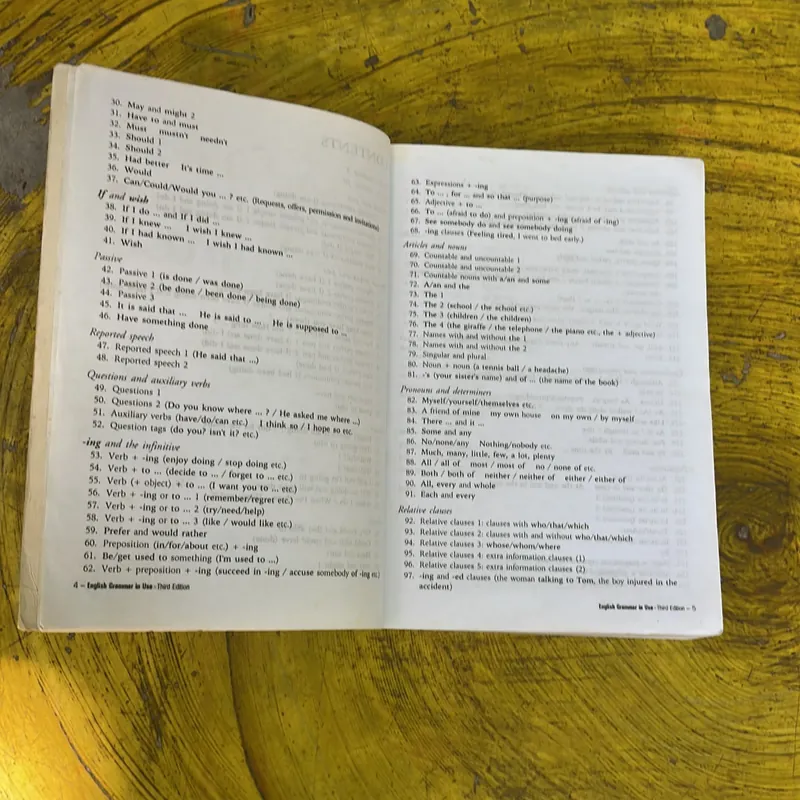 30. May and might 2
31. Have to and must
32. Must mustn't needn't
33. Should 1
34. Should 2
35. Had better It's time ...
36. Would
37. Can/Could/Would you ... ? etc. (Requests, offers, permission and invitations)
If and wish
38. If I do ... and If I did ...
39. If I knew ... I wish I knew ...
40. If I had known ... I wish I had known ...
41. Wish
Passive
42. Passive 1 (is done / was done)
43. Passive 2 (be done / been done / being done)
44. Passive 3
45. It is said that ... He is said to ... He is supposed to ...
46. Have something done
Reported speech
47. Reported speech 1 (He said that ...)
48. Reported speech 2
Questions and auxiliary verbs
49. Questions 1
50. Questions 2 (Do you know where ... ? / He asked me where ...)
51. Auxiliary verbs (have/do/can etc.) I think so / I hope so etc.
52. Question tags (do you? isn't it? etc.)
-ing and the infinitive
53. Verb + -ing (enjoy doing / stop doing etc.)
54. Verb + to ... (decide to ... / forget to ... etc.)
55. Verb (+ object) + to ... (I want you to ... etc.)
56. Verb + -ing or to ... 1 (remember/regret etc.)
57. Verb + -ing or to ... 2 (try/need/help)
58. Verb + -ing or to ... 3 (like / would like etc.)
59. Prefer and would rather
60. Preposition (in/for/about etc.) + -ing
61. Be/get used to something (I'm used to ...)
62. Verb + preposition + -ing (succeed in -ing / accuse somebody of -ing etc.)
4 – English Grammar in Use - Third Edition
63. Expressions + -ing
64. To ... , for ... and so that ... (purpose)
65. Adjective + to ...
66. To ... (afraid to do) and preposition + -ing (afraid of -ing)
67. See somebody do and see somebody doing
68. -ing clauses (Feeling tired, I went to bed early.)
Articles and nouns
69. Countable and uncountable 1
70. Countable and uncountable 2
71. Countable nouns with a/an and some
72. A/an and the
73. The 1
74. The 2 (school / the school etc.)
75. The 3 (children / the children)
76. The 4 (the giraffe / the telephone / the piano etc., the + adjective)
77. Names with and without the 1
78. Names with and without the 2
79. Singular and plural
80. Noun + noun (a tennis ball / a headache)
81. -'s (your sister's name) and of ... (the name of the book)
Pronouns and determiners
82. Myself/yourself/themselves etc.
83. A friend of mine my own house on my own / by myself
84. There ... and it ...
85. Some and any
86. No/none/any Nothing/nobody etc.
87. Much, many, little, few, a lot, plenty
88. All / all of most / most of no / none of etc.
89. Both / both of neither / neither of either / either of
90. All, every and whole
91. Each and every
Relative clauses
92. Relative clauses 1: clauses with who/that/which
93. Relative clauses 2: clauses with and without who/that/which
94. Relative clauses 3: whose/whom/where
95. Relative clauses 4: extra information clauses (1)
96. Relative clauses 5: extra information clauses (2)
97. -ing and -ed clauses (the woman talking to Tom, the boy injured in the
accident)
English Grammar in Use - Third Edition – 5